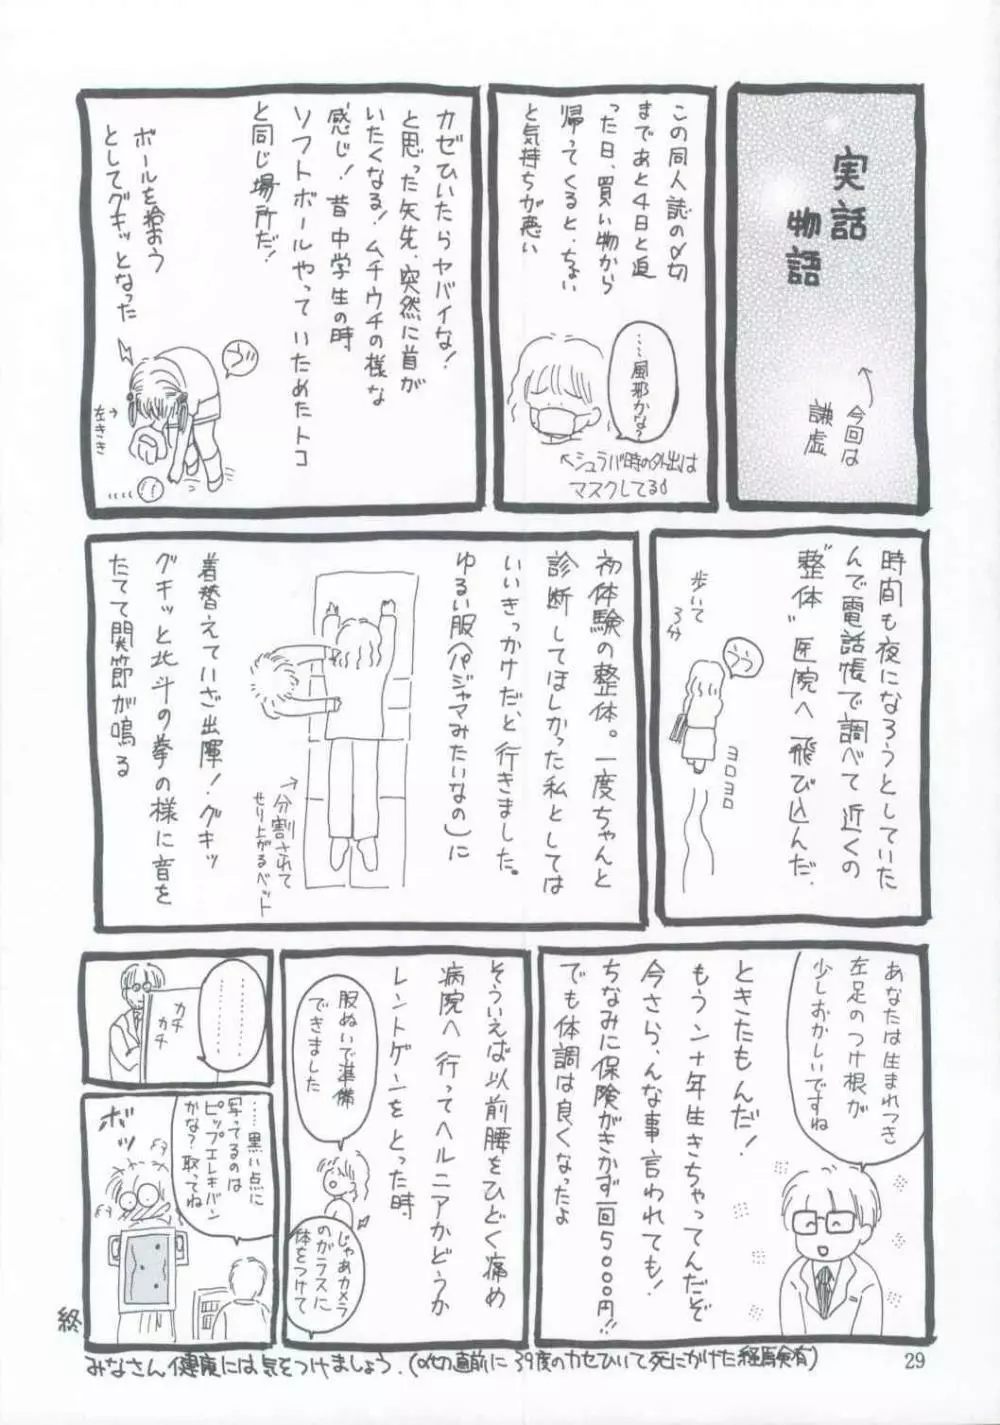 実話
物語
↑今回は
謙虚
この同人誌の〆切
まであと4日と迫
った日、買い物から
帰ってくると、ちょい
と気持ちが悪い
……風邪かな?
↑シュラバ時の外出は
マスクしてるσ
カゼひいたらヤバイな!
と思った矢先、突然に首が
いたくなる!ムチウチの様な
感じ!昔中学生の時
ソフトボールやっていためたトコ
と同じ場所だ!
ボールを拾おう
としてグキッとなった
うっ
左きき→
時間も夜になろうとしていた
んで電話帳で調べて近くの
"整体"医院へ飛び込んだ.
歩いて
3分
うう
ヨロヨロ
初体験の整体。一度ちゃんと
診断してほしかった私としては
いいきっかけだ、と行きました。
ゆるい服(パジャマみたいなの)に
→分割されて
せり上がるベット
着替えていざ出陣!グキッ
グキッと北斗の拳の様に音を
たてて関節が鳴る
あなたは生まれつき
左足のつけ根が
少しおかしいですね
ときたもんだ!
もうン十年生きちゃってんだぞ
今さら、んな事言われても!
ちなみに保険がきかず一回5000円!!
でも体調は良くなったよ
そういえば以前腰をひどく痛め
病院へ行ってヘルニアかどうか
レントゲンをとった時
服ぬいで準備
できました
じゃあカメラ
のガラスに
体をつけて
…………
…………
カチ
カチ
……黒い点に
写ってるのは
ピップエレキバン
かな?取ってね
ボッ
終
みなさん健康には気をつけましょう.(〆切直前に39度のカゼひいて死にかけた経験有)
29